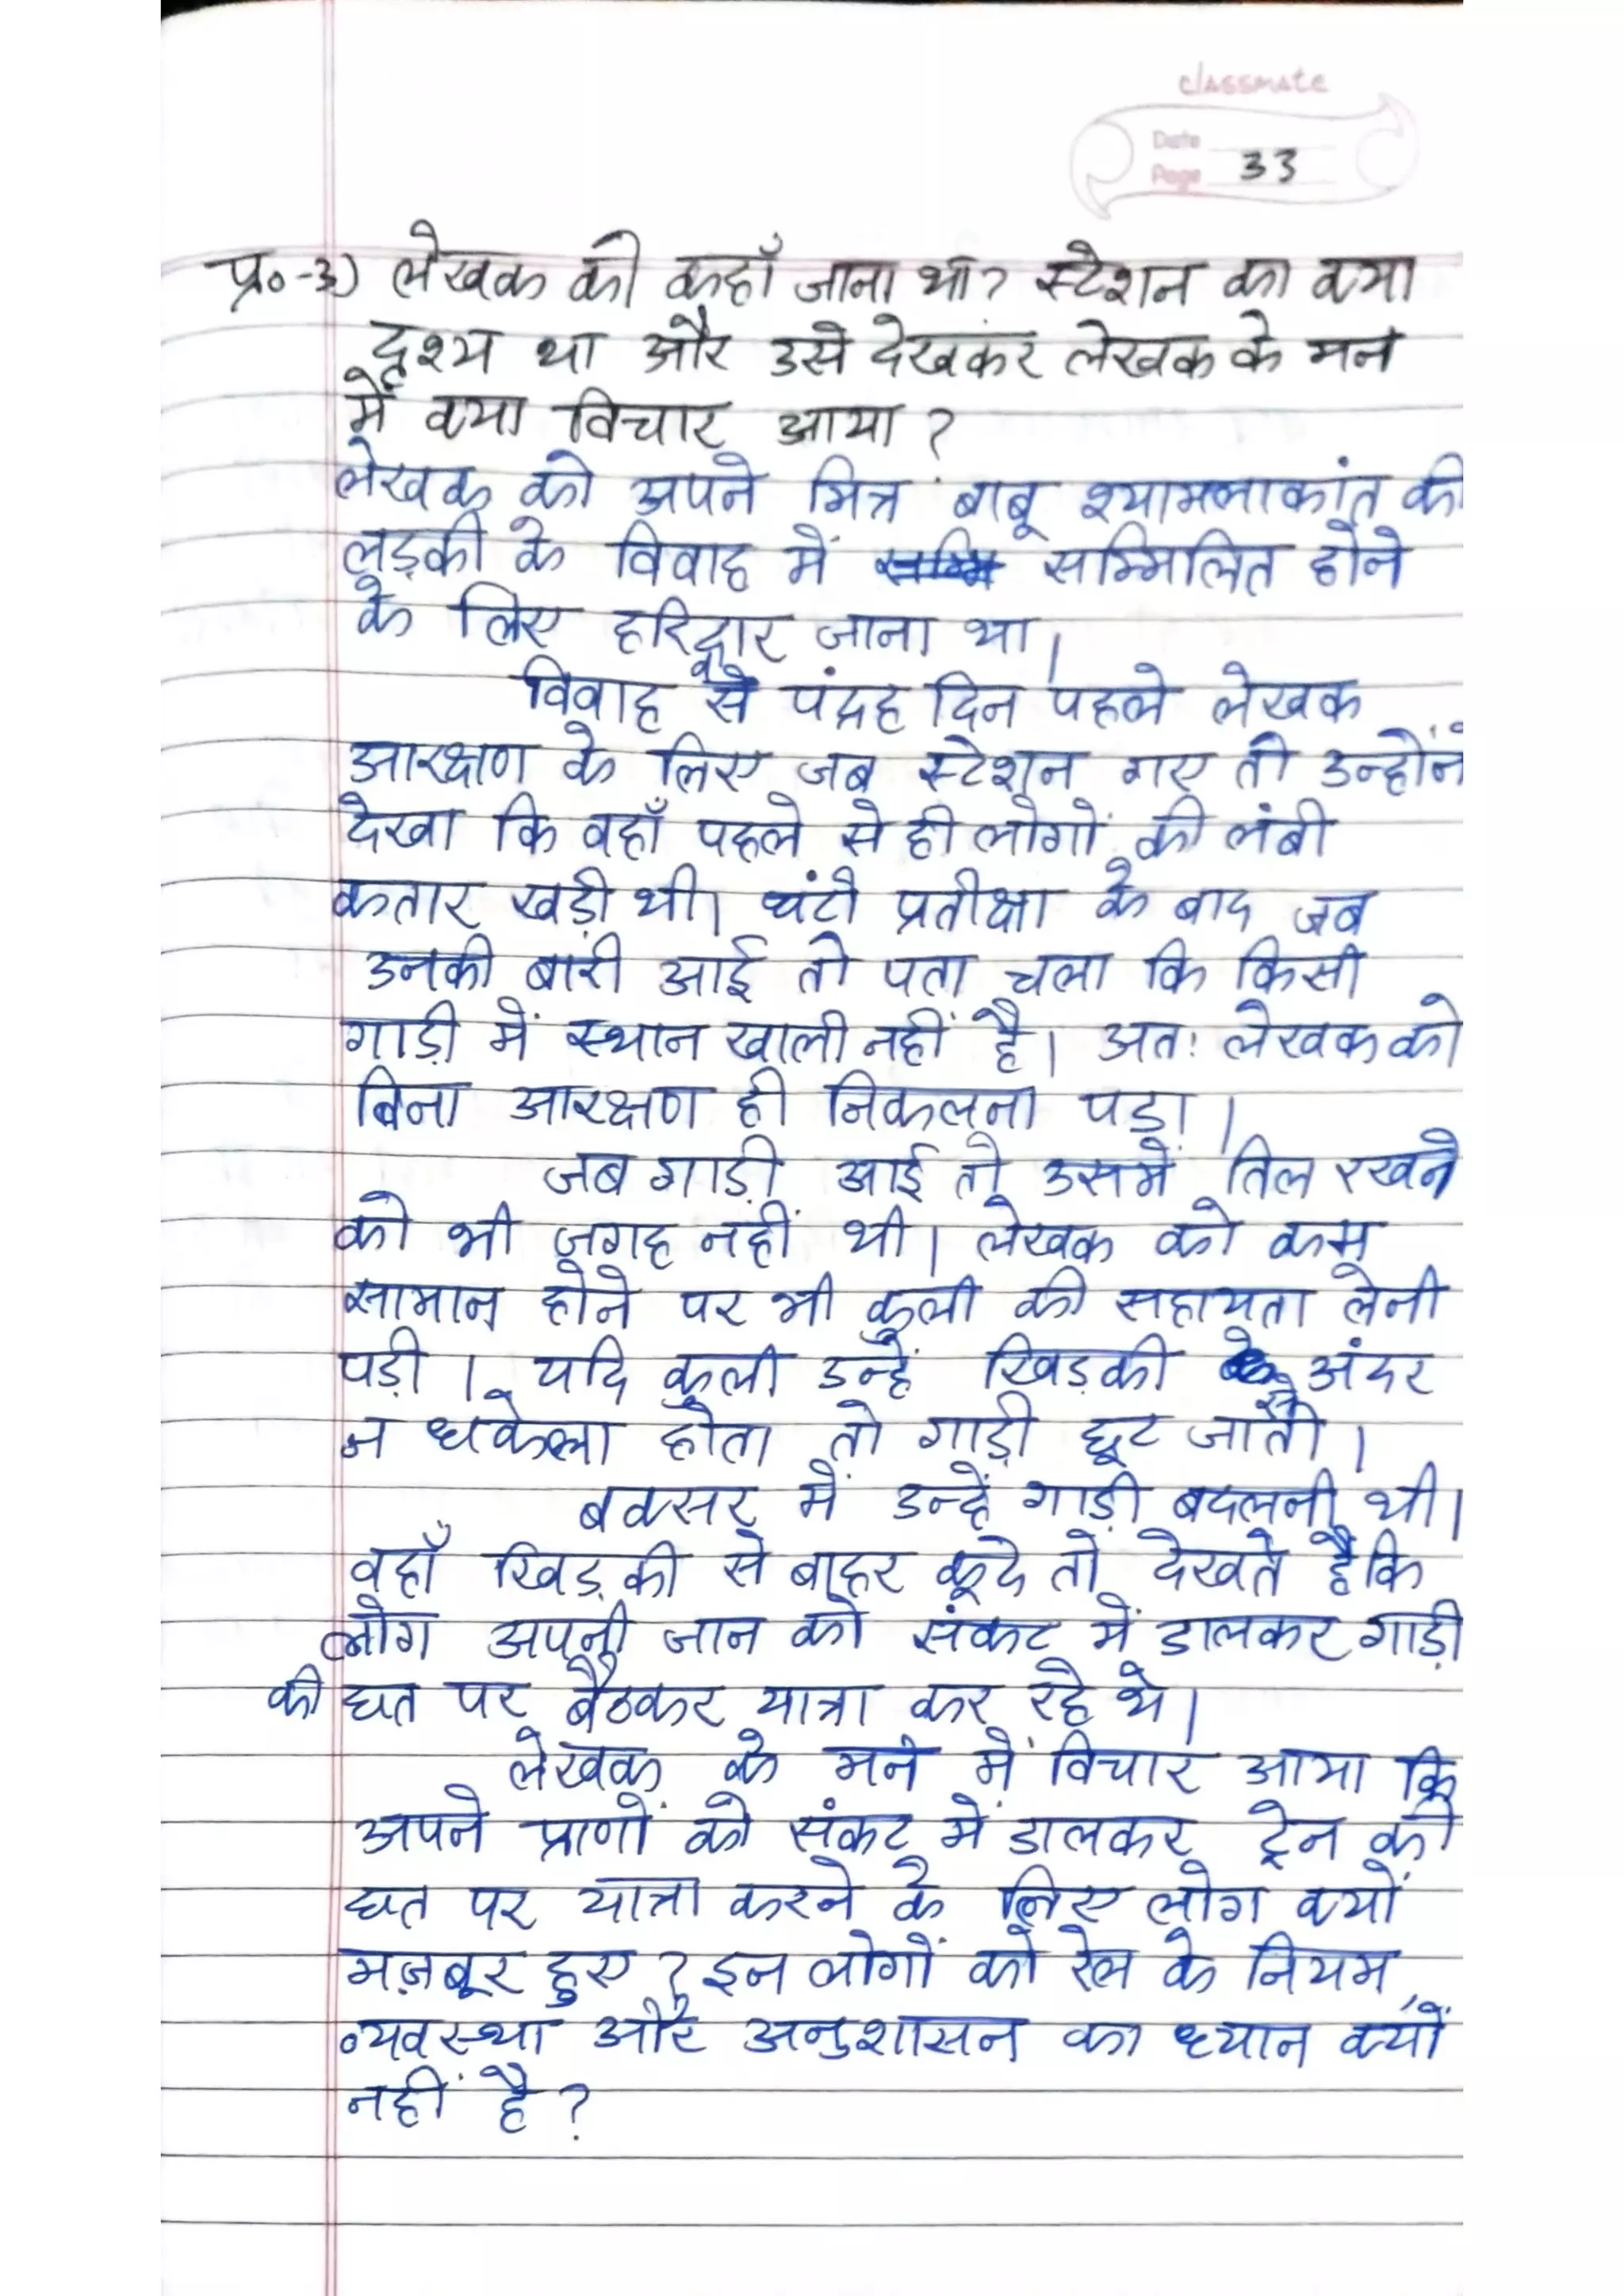 classmate
Date
Page 33
प्र०-3) लेखक को कहाँ जाना था? स्टेशन का क्या
दृश्य था और उसे देखकर लेखक के मन
में क्या विचार आया?
लेखक को अपने मित्र बाबू श्यामलाकांत की
लड़की के विवाह में सम्मिलित होने
के लिए हरिद्वार जाना था।
विवाह से पंद्रह दिन पहले लेखक
आरक्षण के लिए जब स्टेशन गए तो उन्होंने
देखा कि वहाँ पहले से ही लोगों की लंबी
कतार खड़ी थी। घंटो प्रतीक्षा के बाद जब
उनकी बारी आई तो पता चला कि किसी
गाड़ी में स्थान खाली नहीं है। अतः लेखक को
बिना आरक्षण ही निकलना पड़ा।
जब गाड़ी आई तो उसमें तिल रखने
को भी जगह नहीं थी। लेखक को कम
सामान होने पर भी कुली की सहायता लेनी
पड़ी। यदि कुली उन्हें खिड़की से अंदर
न धकेला होता तो गाड़ी छूट जाती।
बक्सर में उन्हें गाड़ी बदलनी थी।
वहाँ खिड़की से बाहर कूदे तो देखते है कि
लोग अपनी जान को संकट में डालकर गाड़ी
की छत पर बैठकर यात्रा कर रहे थे।
लेखक के मन में विचार आया कि
अपने प्राणों को संकट में डालकर ट्रेन की
छत पर यात्रा करने के लिए लोग क्यों
मज़बूर हुए? इन लोगों को रेल के नियम,
व्यवस्था और अनुशासन का ध्यान क्यों
नहीं है?